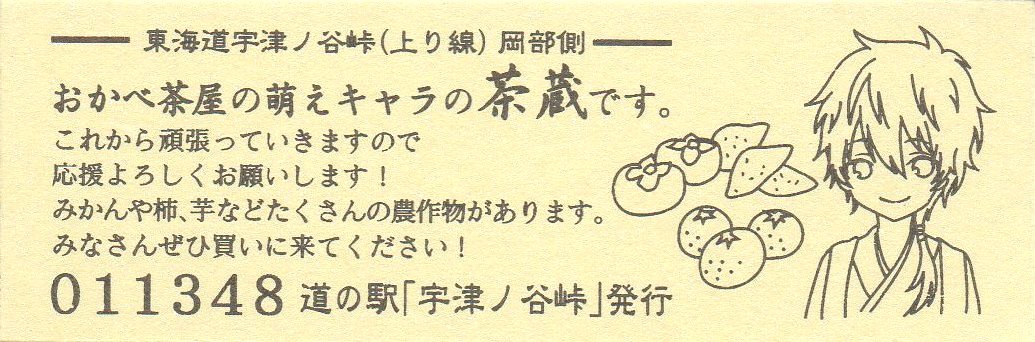 東海道宇津ノ谷峠(上り線) 岡部側
おかべ茶屋の萌えキャラの茶蔵です。
これから頑張っていきますので
応援よろしくお願いします！
みかんや柿、芋などたくさんの農作物があります。
みなさんぜひ買いに来てください！
011348 道の駅「宇津ノ谷峠」発行